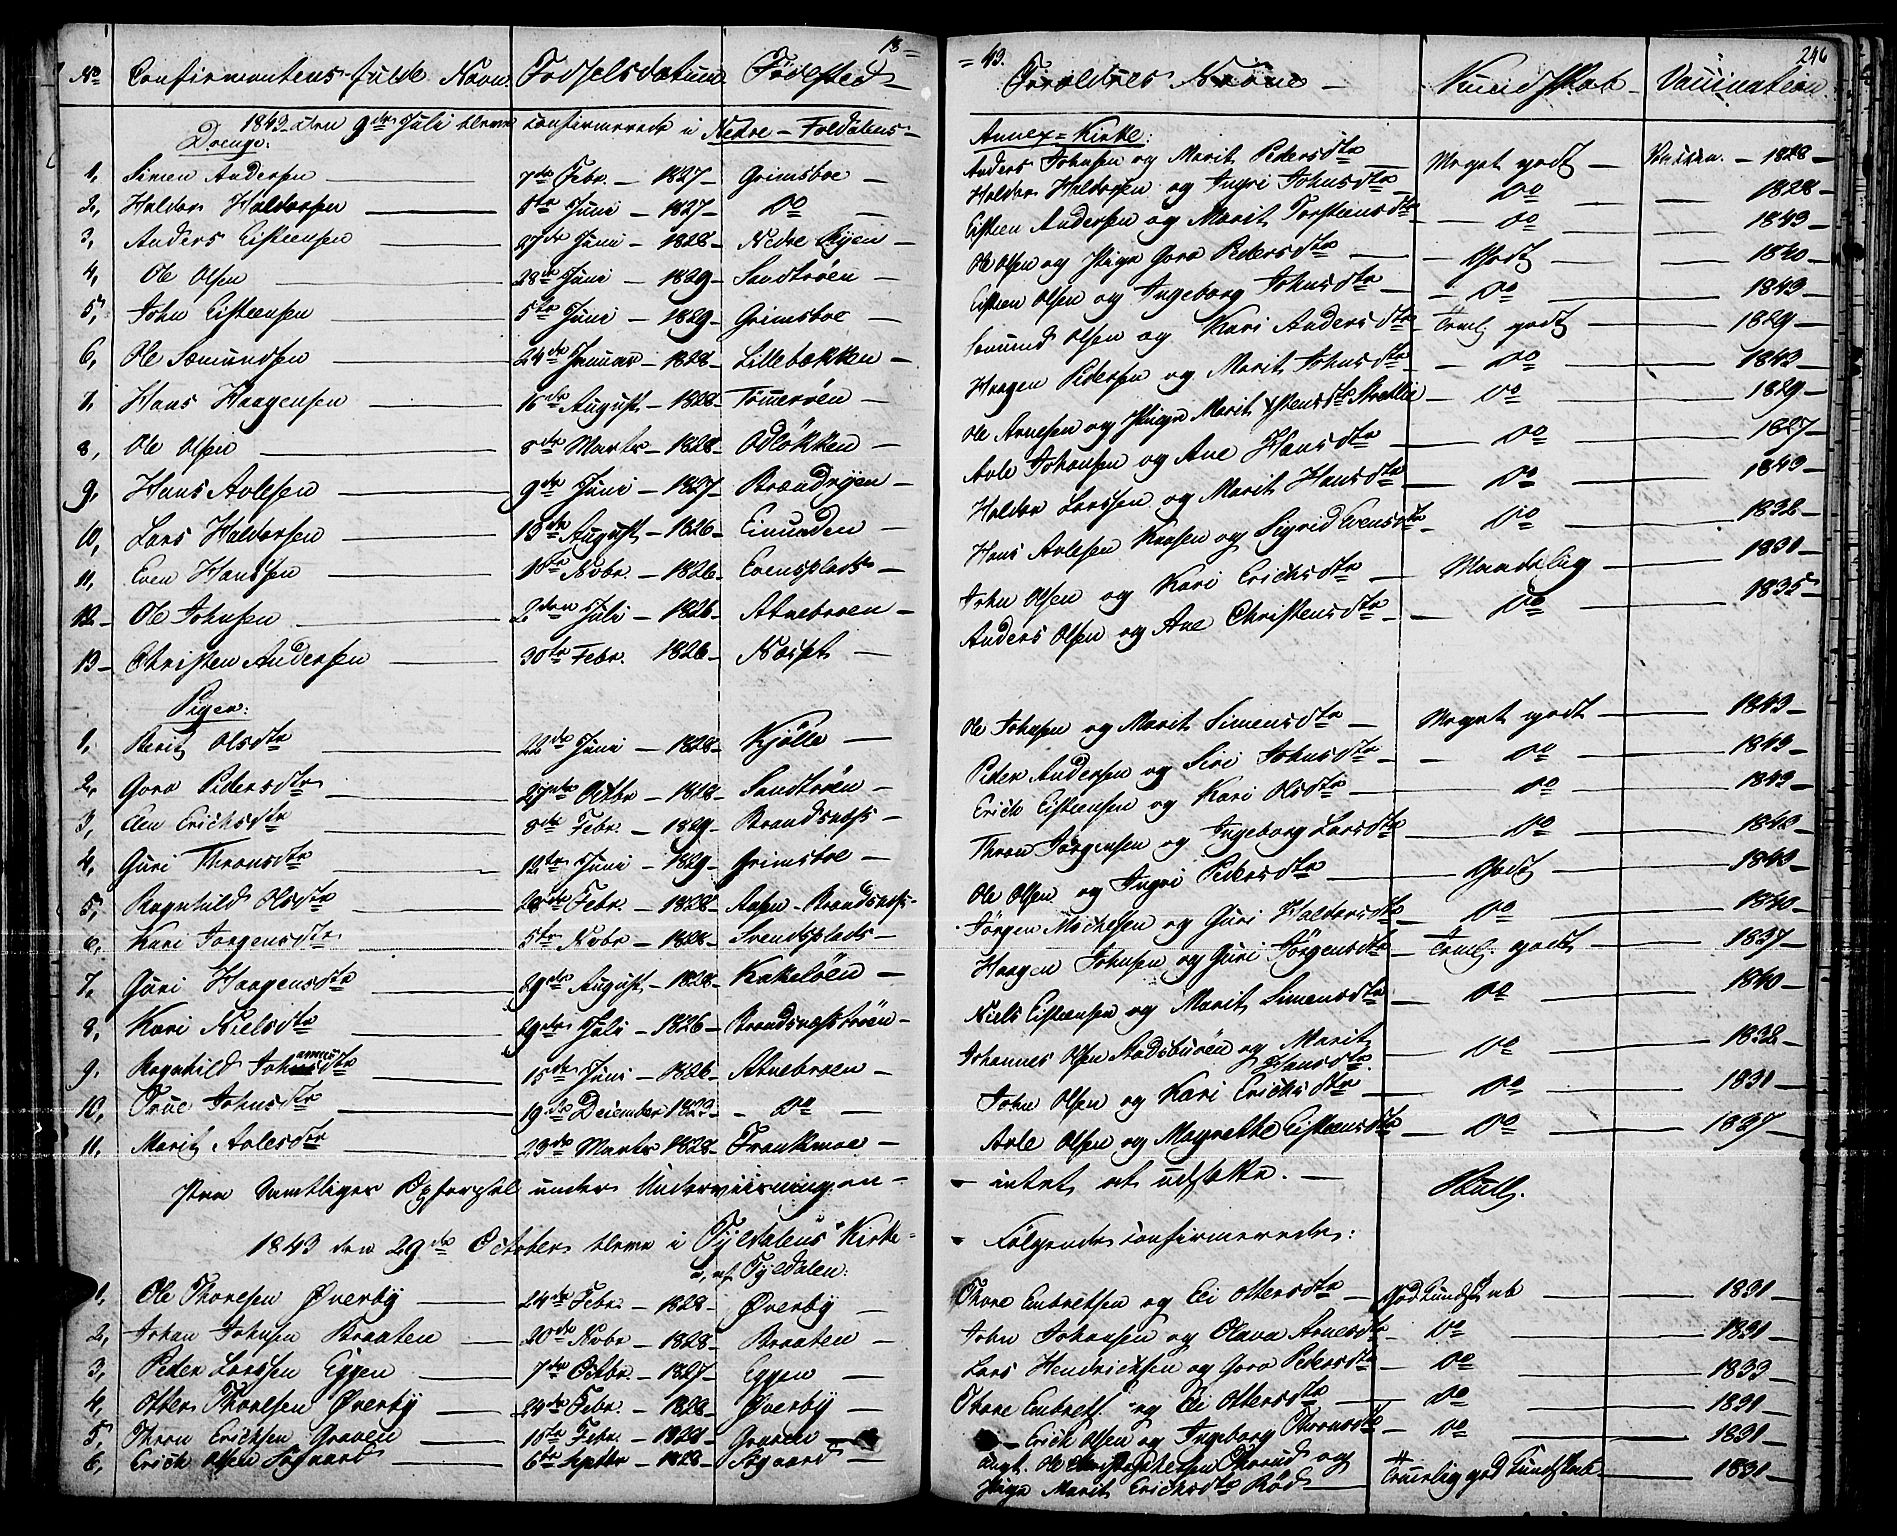 18=
No Confirmantens fulde Navn Fødselsdatum Fødested
1843 den 9de Juli bleve confirmerede i Nedre-Foldalens-
Drenge:
1, Simen Andersen 7de Febr. - 1827- Grimsboe -
2, Haldor Haldorsen 8de Juni - 1827- Do -
3, Anders Eisteensen 27de Juni - 1828- Nedre Ryen -
4, Ole Olsen 28de Juni - 1829- Sandtrøen -
5, John Eisteensen 5te Juni - 1829- Grimsboe -
6, Ole Sæmundsen 24de Januar - 1828- Lillebækken -
7, Hans Haagensen 16de August - 1828-
8, Ole Olsen 8de Marts - 1828- Odløkken -
9, Hans Avlesen 9de Juni - 1827- Brændryen -
10, Lars Haldorsen 13de August - 1826- Einunden -
11, Even Hansen 1ste Novbr. - 1826- Evensplads -
12- Ole Johnsen 2den Juli - 1826- Atnebroen -
13- Christen Andersen 30te Febr. 1826-
Piger:
1, Berit Olsdtr 22de Juni - 1828- Kjølle -
2, Gora Pedersdtr 27de Octbr - 1828- Sandtrøen -
3, Eli Erichsdtr 8de Febr. - 1829- Brandsnæss -
4, Guri Thronsdtr 12te Juni - 1829- Grimsboe -
5, Ragnhild Olsdtr 28de Febr. - 1828- Aasen-Brandsnæss-
6, Kari Jørgensdtr 5te Novbr - 1828- Svendsplads-
7, Guri Haagensdtr 29de August - 1828- Krokeløen -
8, Kari Nielsdtr 29de Juli - 1826- Brandsnæstrøen-
9, Ragnhild Johannesdtr 15de Juni - 1826- Atnebroen -
10, Johnsdtr 19de December 1823- - Do -
11, Marit Avlesdtr 23de Marts - 1828- Frankmoe -
Paa Samtliges Opførsel under Underviisningen -
1843 den 29de October bleve i Tyldalens Kirke-
a, af Tyldalen:
1, Ole Thoresen Øverby 24de Febr. - 1828- Øverby -
2, Johan Johnsen Braaten 20de Novbr - 1828- Braaten -
3, Peder Larssen Eggen 7de Octbr. - 1827- Eggen -
4, Otter Thoresen Øverby 24de Febr. - 1828- Øverby -
5, Thron Erichsen Graven 15te Febr. - 1828- Graven -
6, Erich Olsen Søgaard 6te Septbr - 1828- Søgaard -
=43. 246
Forældres Navne - Kundskab - Vaccination.
Annex=Kirke:
Anders Johnsen og Marit Pedersdtr - Meget godt - - 1828-
Haldor Haldorsen og Ingri Johnsdtr - Do - 1828-
Eisteen Andersen og Marit Torsteensdtr - Do - 1843-
Ole Olsen og Pige Gora Pedersdtr - Godt - 1840-
Eisteen Olsen og Ingeborg Johnsdtr - Do - 1843-
Sæmund Olsen og Kari Andersdtr - Teml. godt - 1829-
Haagen Pedersen og Marit Johnsdtr - Do - 1843-
Ole Arnesen og Pigen Marit - Do - 1829-
Avle Johansen og Ane Hansdtr - Do - 1827-
Haldor Larssen og Marit Hansdtr - Do - 1843-
Hans Avlesen og Sigrid Evensdtr - Do - 1832-
John Olsen og Kari Erichsdtr - Maadelig - 1831-
Anders Olsen og Ane Christensdtr - Do - 1835-
Ole Johnsen og Marit Simensdtr - Meget godt - 1843-
Peder Andersen og Siri Johnsdtr - Do - 1843-
Erich Eisteensen og Kari Olsdtr - Do - 1843-
Thron Jørgensen og Ingeborg Larsdtr - Do - 1843-
Ole Olsen og Ingri Pedersdtr - Godt - 1843-
Jørgen Michelsen og Guri Haldorsdtr - Do - 1840-
Haagen Johnsen og Guri Jørgensdtr - Teml. godt - 1837-
Niels Eisteensen og Marit Simensdtr - Do - 1840-
Johannes Olsen og Marit
Johnsdtr - Do - 1832-
John Olsen og Kari Erichsdtr - Do - 1831-
Avle Olsen og Magrethe Eisteensdtr - Do - 1837-
- intet at udsætte. -
- Følgende confirmerede:
Thore Embretsen og Eli Ottersdtr - God Kundskab - 1831-
John Johansen og Olava Arnesdtr - Do - 1831-
Lars Hendrichsen og Gora Pedersdtr - Do - 1833-
Thore Embrets. og Eli Ottersdtr - Do - 1831-
Erich Olsen og Ingeborg Thoresdtr - Do - 1831-
Ungk. Ole og
Pige Marit Erichsdtr Rød - Temmelig god Kundskab - 1831-